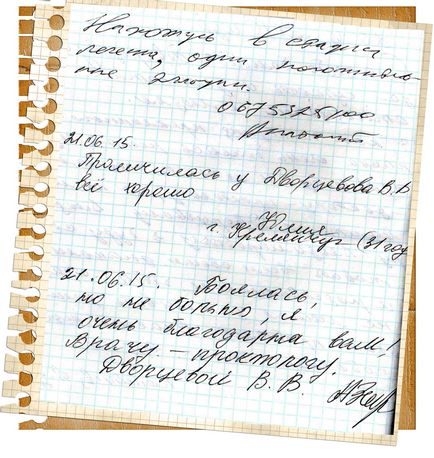 Нахожусь в стадии
лечения, одни положитель
ные эмоции.
0675325700
21.06.15.
Пролечилась у Дворцевова В.В
всё хорошо
Юлия
г. Кременчуг (31 год
21.06.15. Боялась,
но не больно, я
очень благодарна вам!
Врачу – проктологу.
Дворцевой В. В.